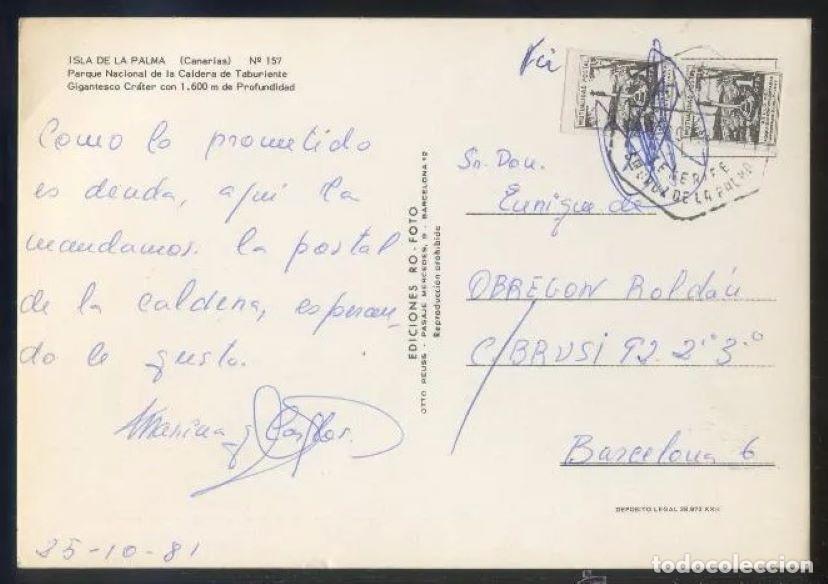 ISLA DE LA PALMA (Canarias) Nº 157
Parque Nacional de la Caldera de Taburiente
Gigantesco Cráter con 1.600 m de Profundidad
Como lo prometido
es deuda, aquí la
mandamos la postal
de la caldera, esperan-
do le guste.
Marina y Carlos.
25-10-81
EDICIONES RO-FOTO
OTTO REUSS - PASAJE MERCEDES, 9 - BARCELONA
Reproducción prohibida
MUTUALIDAD POSTAL
MUTUALIDAD POSTAL
TENERIFE
DE LA PALMA
Sr. Don.
Enrique de
OBREGON Roldán
C/BRUSI 92 2º 3º
Barcelona 6
DEPOSITO LEGAL
todocoleccion.net